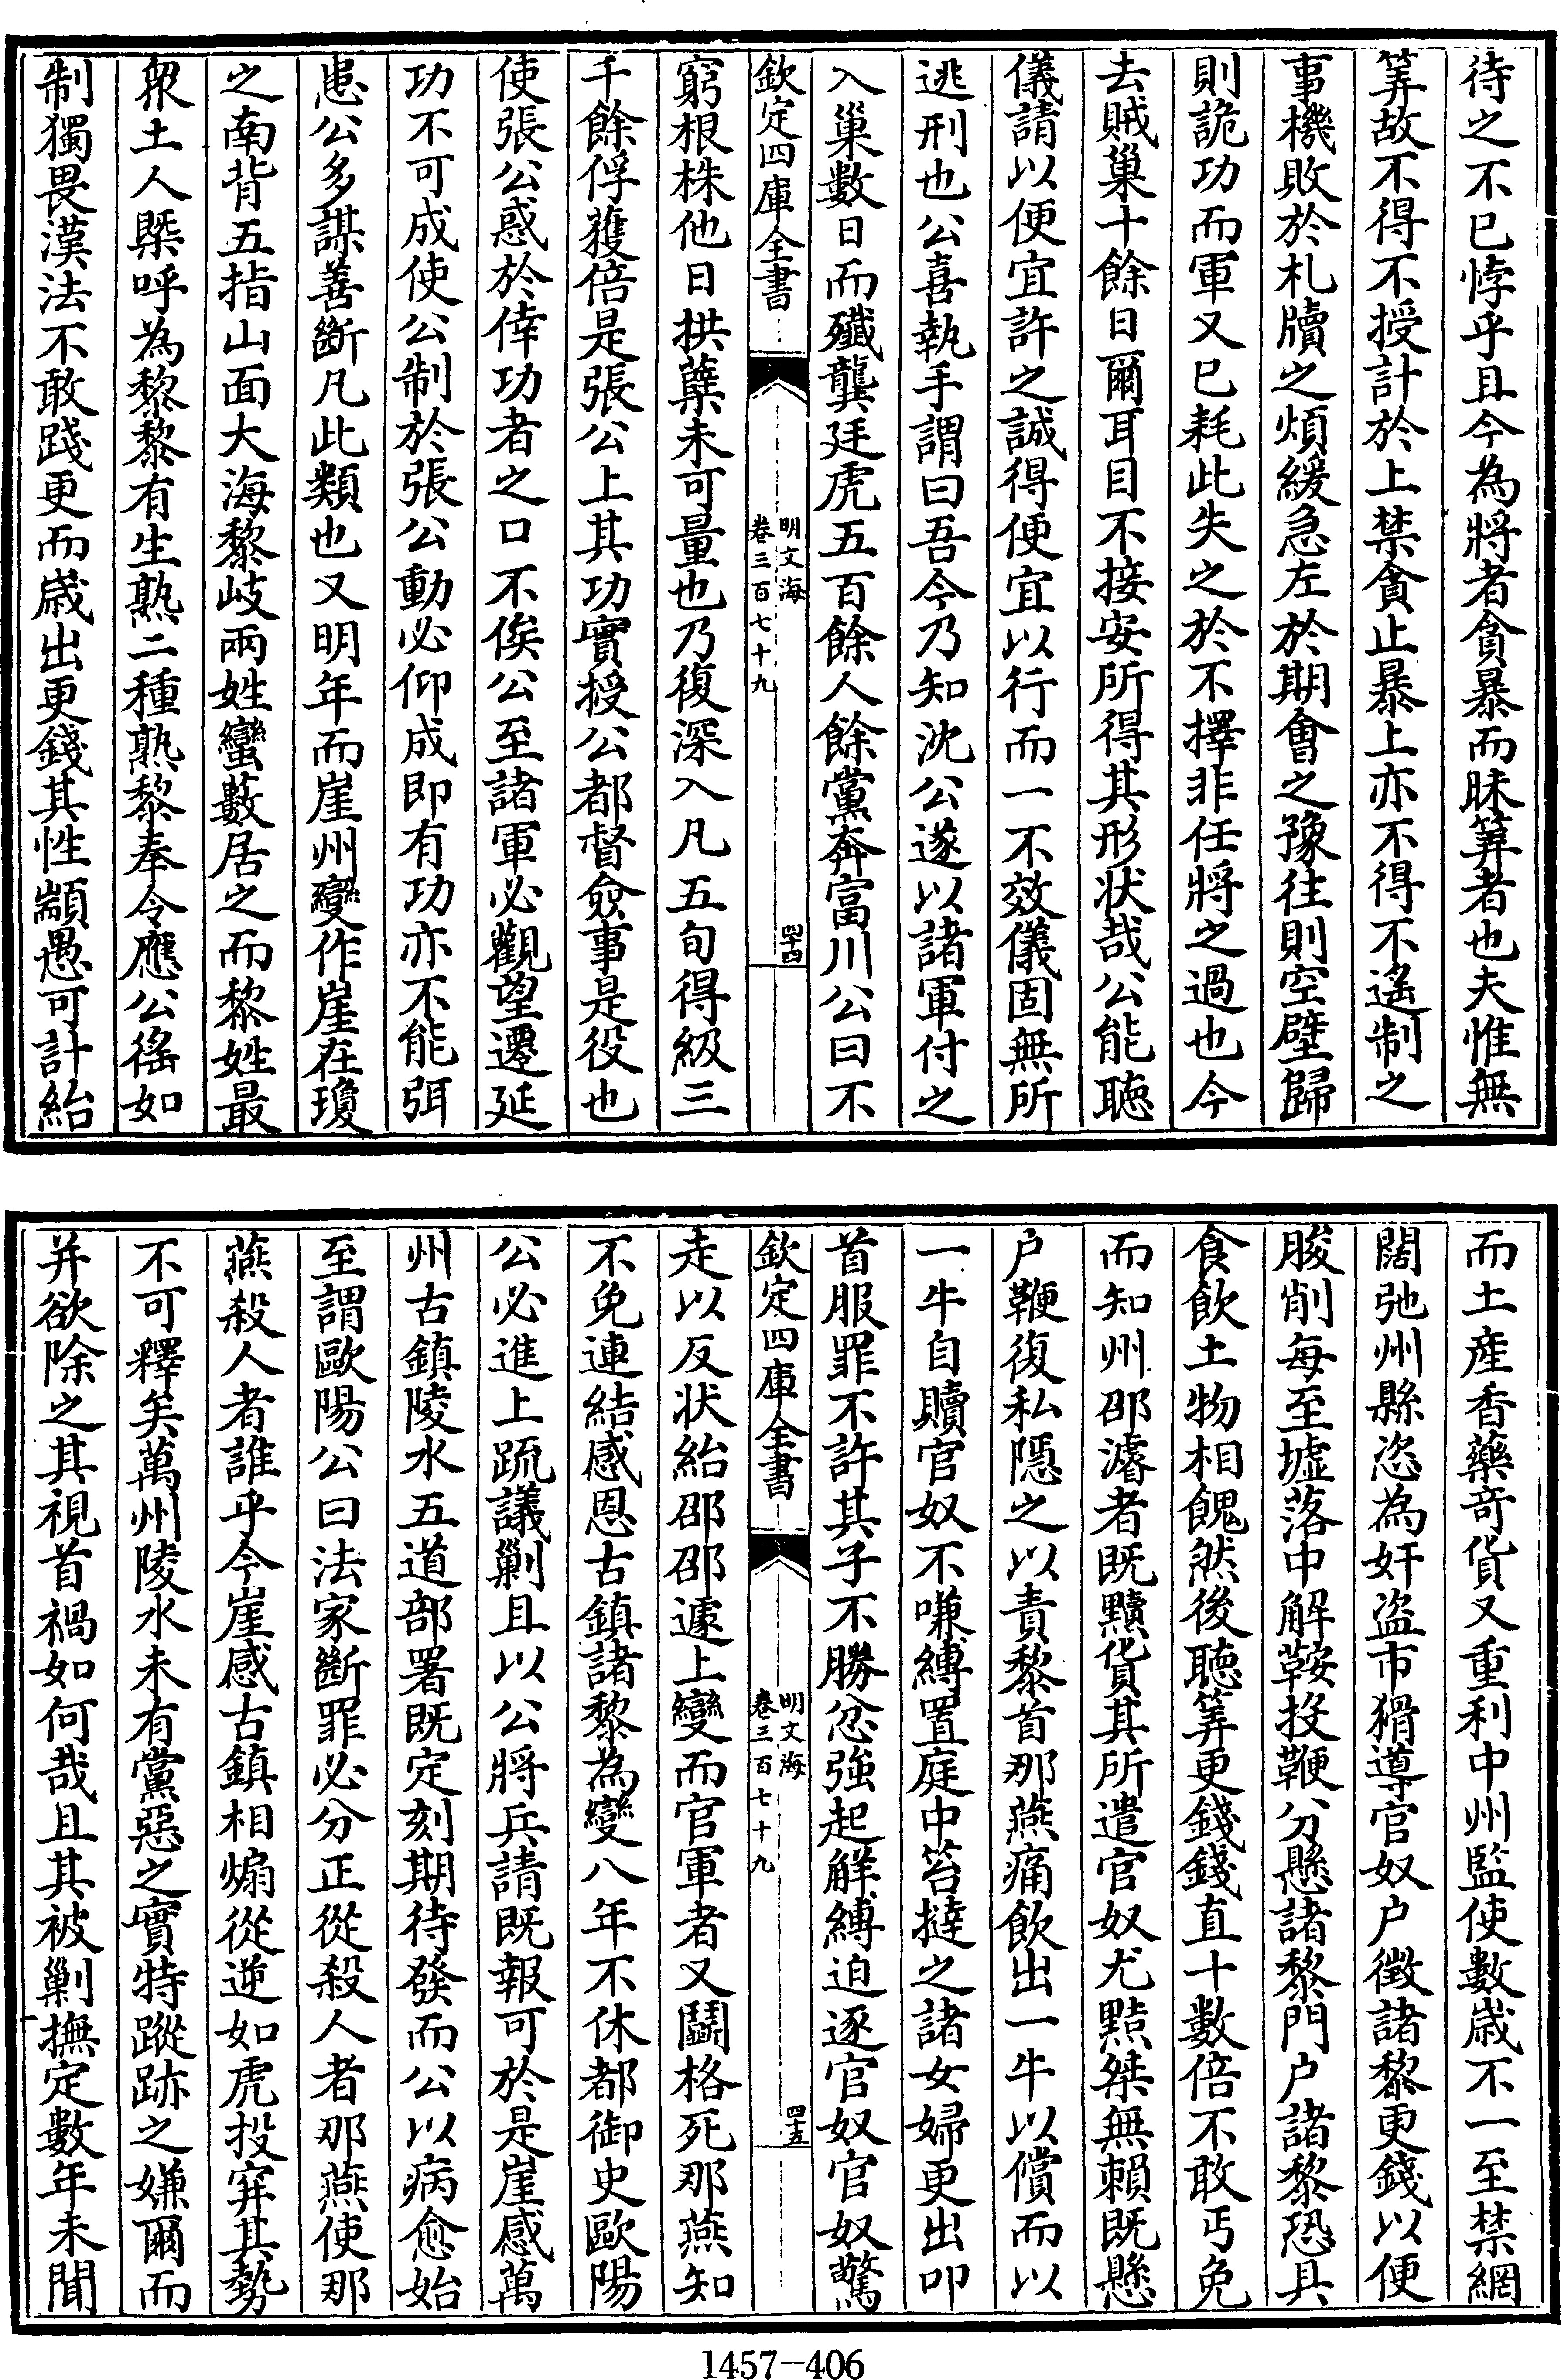 待之不已悖乎且今為將者貪暴而昧筭者也夫惟無
筭故不得不授計於上禁貪止暴上亦不得不遙制之
事機敗於札牘之煩緩急左於期會之豫往則空壁歸
則詭功而軍又已耗此失之於不擇非任將之過也今
去賊巢十餘日爾耳目不接安所得其形狀哉公能聽
儀請以便宜許之誠得便宜以行而一不效儀固無所
逃刑也公喜執手謂曰吾今乃知沈公遂以諸軍付之
入巢數日而殱龔廷虎五百餘人餘黨奔富川公曰不
欽定四庫全書
明文海
卷三百七十九
四十四
窮根株他日拱蘖未可量也乃復深入凡五旬得級三
千餘俘獲倍是張公上其功實授公都督僉事是役也
使張公惑於倖功者之口不俟公至諸軍必觀望遷延
功不可成使公制於張公動必仰成即有功亦不能弭
患公多謀善斷凡此類也又明年而崖州變作崖在瓊
之南背五指山面大海黎岐兩姓蠻藪居之而黎姓最
衆土人槩呼為黎黎有生熟二種熟黎奉令應公徭如
制獨畏漢法不敢踐更而歲出更錢其性顓愚可計紿
而土産香藥竒貨又重利中州監使數歲不一至禁網
闊弛州縣恣為奸盜市猾導官奴户徵諸黎更錢以便
朘削每至墟落中解鞍投鞭分懸諸黎門户諸黎恐具
食飲土物相餽然後聽筭更錢錢直十數倍不敢丐免
而知州邵濬者既黷貨其所遣官奴尤黠桀無賴既懸
户鞭復私隱之以責黎首那燕痛飲出一牛以償而以
一牛自贖官奴不嗛縛置庭中笞撻之諸女婦更出叩
首服罪不許其子不勝忿強起解縛迫逐官奴官奴驚
欽定四庫全書
明文海
卷三百七十九
四十五
走以反狀紿邵邵遽上變而官軍者又鬭格死那燕知
不免連結感恩古鎮諸黎為變八年不休都御史歐陽
公必進上疏議剿且以公將兵請既報可於是崖感萬
州古鎮陵水五道部署既定刻期待發而公以病愈始
至謂歐陽公曰法家斷罪必分正從殺人者那燕使那
燕殺人者誰乎今崖感古鎮相煽從逆如虎投穽其勢
不可釋矣萬州陵水未有黨惡之實特蹤跡之嫌爾而
并欲除之其視首禍如何哉且其被剿撫定數年未聞
1457-406